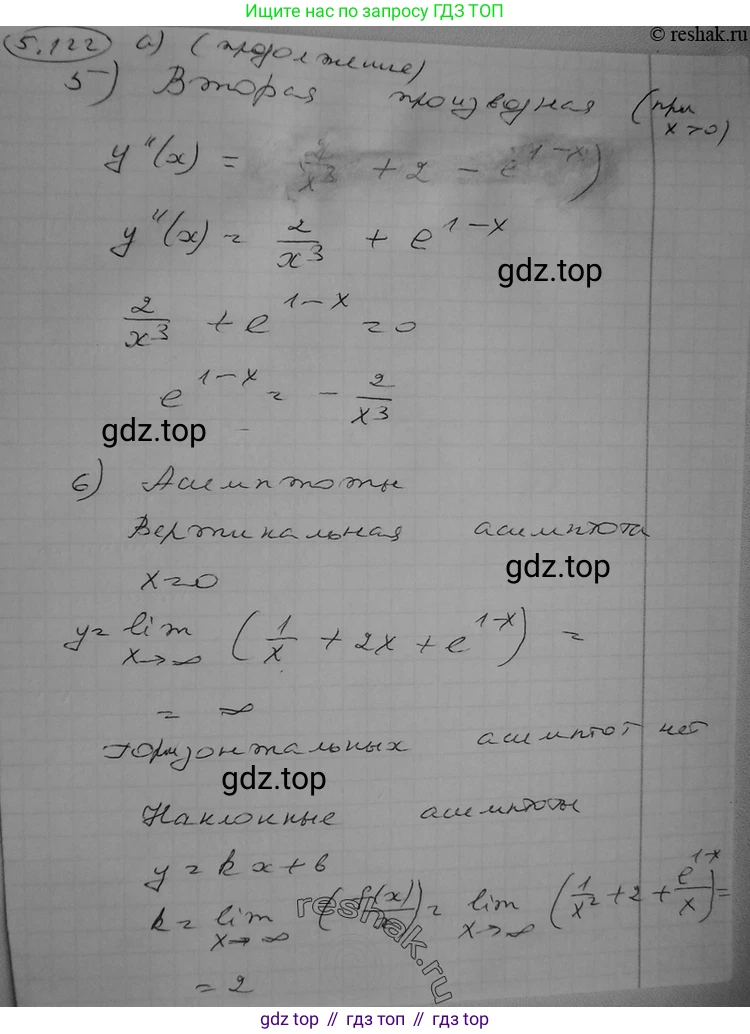 Ещё больше решений по запросу ГДЗ ТОП
© reshak.ru
5.122 а) (продолжение)
5) Вторая производная (при x>0)
y''(x) = (2/x³ + 2 - e^(1-x))
y''(x) = 2/x³ + e^(1-x)
gdz.top
2/x³ + e^(1-x) = 0
e^(1-x) = - 2/x³
gdz.top
6) Асимптоты
Вертикальная асимптота
gdz.top
x=0
y = lim x→∞ (1/x + 2x + e^(1-x)) =
= ∞
Горизонтальных асимптот нет
gdz.top
Наклонные асимптоты
y = kx + b
k = lim x→∞ (f(x)/x) = lim x→∞ (1/x² + 2 + e^(1-x)/x) =
reshak.ru
= 2
gdz.top // гдз топ // гдз.top